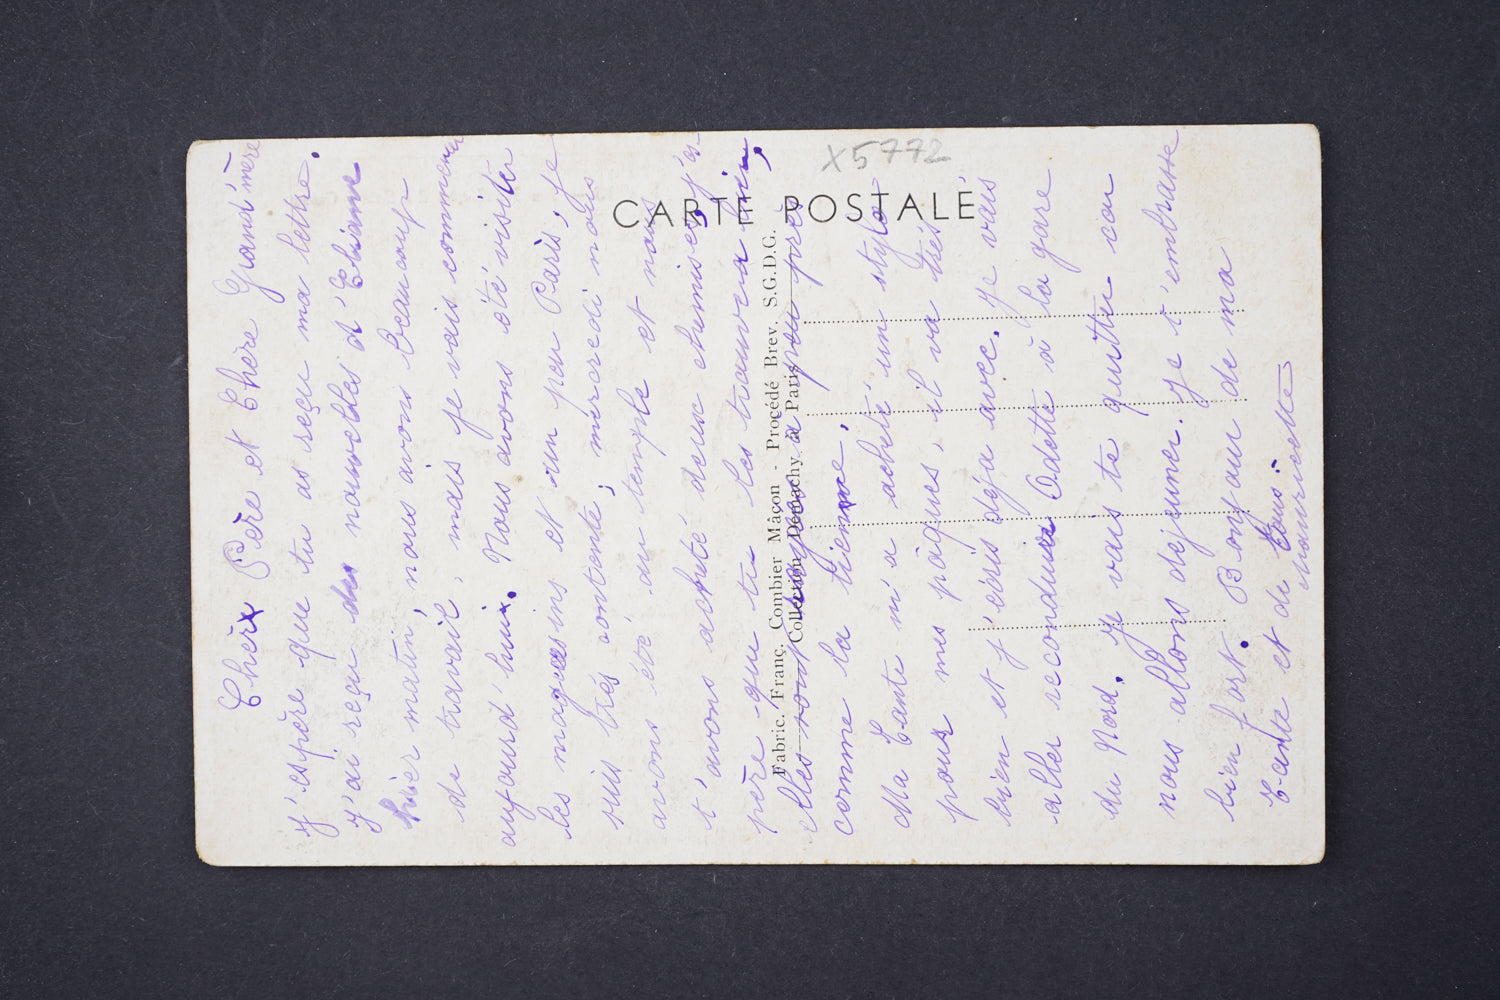 X5772
CARTE POSTALE
Fabric. Franç. Combier Mâcon - Procédé Brev. S.G.D.G.
Collection Demachy à Paris
Chère Père et Chère Grand'mère
J'espère que tu as reçu ma lettre.
J'ai reçu des nouvelles d'Eliane
hier matin, nous avons beaucoup
de travail, mais je vais commencer
aujourd'hui. Nous avons été visiter
les magasins et un peu Paris, je
suis très contente, mercredi nous
avons été au temple et nous
t'avons acheté deux chemises, j'es
père que tu les trouvera bien,
elles sont longues à peu près
comme la tienne.
Ma Tante m'a acheté un stylo
pour mes pâques, il va très
bien et j'écris déja avec. Je vais
aller reconduire Odette à la gare
du Nord. Je vais te quitter car
nous allons dejeuner. Je t'embrasse
bien fort. Bonjour de ma
Tante et de Tous.
Mauricette